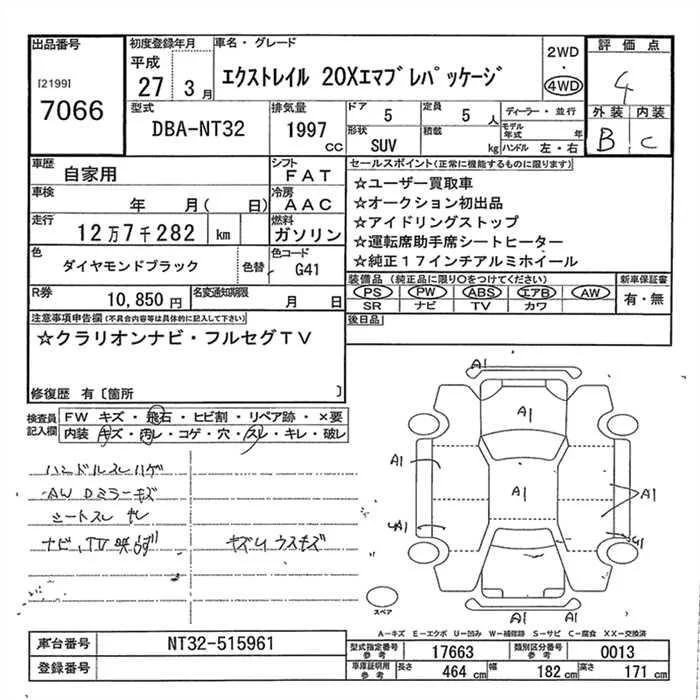 出品番号 初度登録年月 車名・グレード 2WD 評価点
[2199] 平成 エクストレイル 20Xエマブレパッケージ ・ 4
7066 27 3月 4WD 外装 内装
型式 排気量 ドア 5 定員 5人 ディーラー・並行 B C
DBA-NT32 1997cc 形状 SUV 積載 kg モデル年式 年
ハンドル 左・右
車歴 自家用 シフト FAT セールスポイント(正常に機能するものに限ります)
車検 年 月( 日) 冷房 AAC ☆ユーザー買取車
走行 12万7千282 km 燃料 ガソリン ☆オークション初出品
☆アイドリングストップ
☆運転席助手席シートヒーター
☆純正17インチアルミホイール
色 ダイヤモンドブラック 色替 色コード G41
R券 10,850円 名変通知期限 月 日
装備品(純正品に限り○をつけてください) 新車保証書
PS PW ABS エアB AW 有・無
SR ナビ TV カワ
後日品
注意事項申告欄(不具合内容等は具体的に記入して下さい)
☆クラリオンナビ・フルセグTV
修復歴 有[箇所 ]
検査員記入欄 FW キズ・飛石・ヒビ割・リペア跡・×要
内装 キズ・汚レ・コゲ・穴・スレ・キレ・破レ
ハンドルスレハゲ
AW Dミラーキズ
シートスレ
ナビ、TV映らず
キズ凹 ウスキズ
A1
A1
A1 A1 A1
A1
A1 A1
スペア
A-キズ E-エクボ U-凹み W-補修跡 S-サビ C-腐食 XX-交換済
車台番号 NT32-515961 型式指定番号 参考 17663 類別区分番号 参考 0013
登録番号 車庫証明用 参考 長さ 464cm 幅 182cm 高さ 171cm